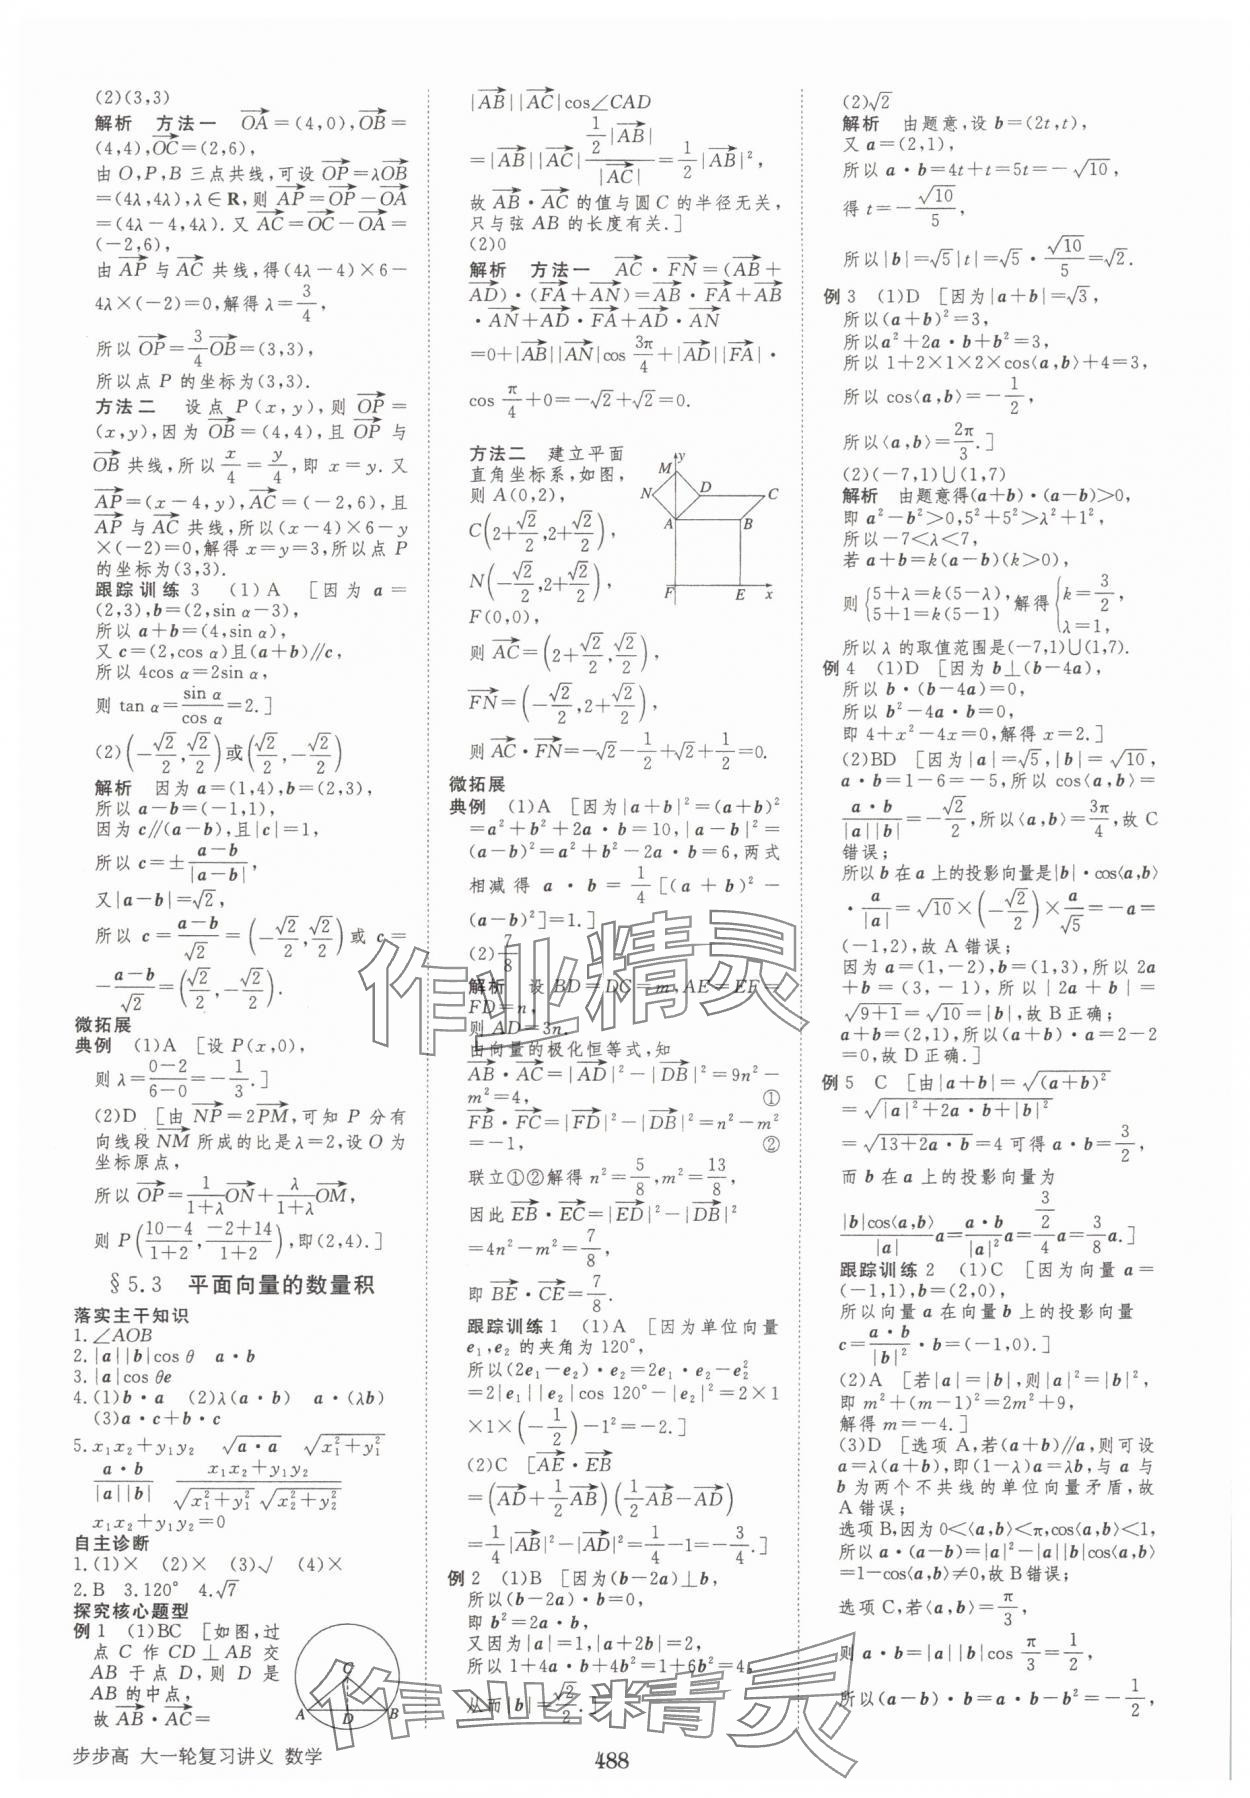 (2)(3,3)
解析 方法一 OA=(4,0),OB=
(4,4),OC=(2,6),
由 O,P,B 三点共线,可设 OP=λOB
=(4λ,4λ),λ∈R,则 AP=OP-OA
=(4λ-4,4λ).又 AC=OC-OA=
(-2,6),
由 AP 与 AC 共线,得(4λ-4)×6-
4λ×(-2)=0,解得 λ=3/4,
所以 OP=3/4 OB=(3,3),
所以点 P 的坐标为(3,3).
方法二 设点 P(x,y),则 OP=
(x,y),因为 OB=(4,4),且 OP 与
OB 共线,所以 x/4=y/4,即 x=y.又
AP=(x-4,y),AC=(-2,6),且
AP 与 AC 共线,所以(x-4)×6-y
×(-2)=0,解得 x=y=3,所以点 P
的坐标为(3,3).
跟踪训练 3 (1)A [因为 a=
(2,3),b=(2,sin α-3),
所以 a+b=(4,sin α),
又 c=(2,cos α)且(a+b)∥c,
所以 4cos α=2sin α,
则 tan α=sin α/cos α=2.]
(2)(-√2/2,√2/2)或(√2/2,-√2/2)
解析 因为 a=(1,4),b=(2,3),
所以 a-b=(-1,1),
因为 c∥(a-b),且|c|=1,
所以 c=±(a-b)/|a-b|,
又|a-b|=√2,
所以 c=(a-b)/√2=(-√2/2,√2/2)或 c=
-(a-b)/√2=(√2/2,-√2/2).
微拓展
典例 (1)A [设 P(x,0),
则 λ=(0-2)/(6-0)=-1/3.]
(2)D [由 NP=2PM,可知 P 分有
向线段 NM 所成的比是 λ=2,设 O 为
坐标原点,
所以 OP=1/(1+λ) ON+λ/(1+λ) OM,
则 P((10-4)/(1+2),(-2+14)/(1+2)),即(2,4).]
§5.3 平面向量的数量积
落实主干知识
1.∠AOB
2.|a||b|cos θ a·b
3.|a|cos θe
4.(1)b·a (2)λ(a·b) a·(λb)
(3)a·c+b·c
5.x₁x₂+y₁y₂ √(a·a) √(x₁²+y₁²)
a·b/(|a||b|) (x₁x₂+y₁y₂)/(√(x₁²+y₁²)√(x₂²+y₂²))
x₁x₂+y₁y₂=0
自主诊断
1.(1)× (2)× (3)√ (4)×
2.B 3.120° 4.√7
探究核心题型
例 1 (1)BC [如图,过
点 C 作 CD⊥AB 交
AB 于点 D,则 D 是
AB 的中点,
故 AB·AC=
C
A D B
|AB||AC|cos∠CAD
=|AB||AC| (1/2|AB|)/|AC|=1/2|AB|²,
故 AB·AC 的值与圆 C 的半径无关,
只与弦 AB 的长度有关.]
(2)0
解析 方法一 AC·FN=(AB+
AD)·(FA+AN)=AB·FA+AB
·AN+AD·FA+AD·AN
=0+|AB||AN|cos 3π/4+|AD||FA|·
cos π/4+0=-√2+√2=0.
方法二 建立平面
直角坐标系,如图,
则 A(0,2),
C(2+√2/2,2+√2/2),
N(-√2/2,2+√2/2),
F(0,0),
y
M
N D C
A B
F E x
则 AC=(2+√2/2,√2/2),
FN=(-√2/2,2+√2/2),
则 AC·FN=-√2-1/2+√2+1/2=0.
微拓展
典例 (1)A [因为|a+b|²=(a+b)²
=a²+b²+2a·b=10,|a-b|²=
(a-b)²=a²+b²-2a·b=6,两式
相减得 a·b=1/4[(a+b)²-
(a-b)²]=1.]
(2)7/8
解析 设 BD=DC=m,AE=EF=
FD=n,
则 AD=3n.
由向量的极化恒等式,知
AB·AC=|AD|²-|DB|²=9n²-
m²=4, ①
FB·FC=|FD|²-|DB|²=n²-m²
=-1, ②
联立①②解得 n²=5/8,m²=13/8,
因此 EB·EC=|ED|²-|DB|²
=4n²-m²=7/8,
即 BE·CE=7/8.
跟踪训练 1 (1)A [因为单位向量
e₁,e₂ 的夹角为 120°,
所以(2e₁-e₂)·e₂=2e₁·e₂-e₂²
=2|e₁||e₂|cos 120°-|e₂|²=2×1
×1×(-1/2)-1²=-2.]
(2)C [AE·EB
=(AD+1/2AB)(1/2AB-AD)
=1/4|AB|²-|AD|²=1/4-1=-3/4.]
例 2 (1)B [因为(b-2a)⊥b,
所以(b-2a)·b=0,
即 b²=2a·b,
又因为|a|=1,|a+2b|=2,
所以 1+4a·b+4b²=1+6b²=4,
从而|b|=√2/2.]
(2)√2
解析 由题意,设 b=(2t,t),
又 a=(2,1),
所以 a·b=4t+t=5t=-√10,
得 t=-√10/5,
所以|b|=√5|t|=√5·√10/5=√2.
例 3 (1)D [因为|a+b|=√3,
所以(a+b)²=3,
所以a²+2a·b+b²=3,
所以 1+2×1×2×cos⟨a,b⟩+4=3,
所以 cos⟨a,b⟩=-1/2,
所以⟨a,b⟩=2π/3.]
(2)(-7,1)∪(1,7)
解析 由题意得(a+b)·(a-b)>0,
即 a²-b²>0,5²+5²>λ²+1²,
所以-7<λ<7,
若 a+b=k(a-b)(k>0),
则{5+λ=k(5-λ), 5+1=k(5-1) 解得{k=3/2, λ=1,
所以 λ 的取值范围是(-7,1)∪(1,7).
例 4 (1)D [因为 b⊥(b-4a),
所以 b·(b-4a)=0,
所以 b²-4a·b=0,
即 4+x²-4x=0,解得 x=2.]
(2)BD [因为|a|=√5,|b|=√10,
a·b=1-6=-5,所以 cos⟨a,b⟩=
a·b/(|a||b|)=-√2/2,所以⟨a,b⟩=3π/4,故 C
错误;
所以 b 在 a 上的投影向量是|b|·cos⟨a,b⟩
·a/|a|=√10×(-√2/2)×a/√5=-a=
(-1,2),故 A 错误;
因为 a=(1,-2),b=(1,3),所以 2a
+b=(3,-1),所以|2a+b|=
√(9+1)=√10=|b|,故 B 正确;
a+b=(2,1),所以(a+b)·a=2-2
=0,故 D 正确.]
例 5 C [由|a+b|=√((a+b)²)
=√(|a|²+2a·b+|b|²)
=√(13+2a·b)=4 可得 a·b=3/2,
而 b 在 a 上的投影向量为
|b|cos⟨a,b⟩/|a| a=a·b/|a|² a=(3/2)/4 a=3/8 a.]
跟踪训练 2 (1)C [因为向量 a=
(-1,1),b=(2,0),
所以向量 a 在向量 b 上的投影向量
c=a·b/|b|²·b=(-1,0).]
(2)A [若|a|=|b|,则|a|²=|b|²,
即 m²+(m-1)²=2m²+9,
解得 m=-4.]
(3)D [选项 A,若(a+b)∥a,则可设
a=λ(a+b),即(1-λ)a=λb,与 a 与
b 为两个不共线的单位向量矛盾,故
A 错误;
选项 B,因为 0<⟨a,b⟩<π,cos⟨a,b⟩<1,
所以 a·(a-b)=|a|²-|a||b|cos⟨a,
b⟩≠0,故 B 错误;
选项 C,若⟨a,b⟩=π/3,
则 a·b=|a||b|cos π/3=1/2,
所以(a-b)·b=a·b-b²=-1/2,
步步高 大一轮复习讲义 数学
488
作业精灵
作业精灵